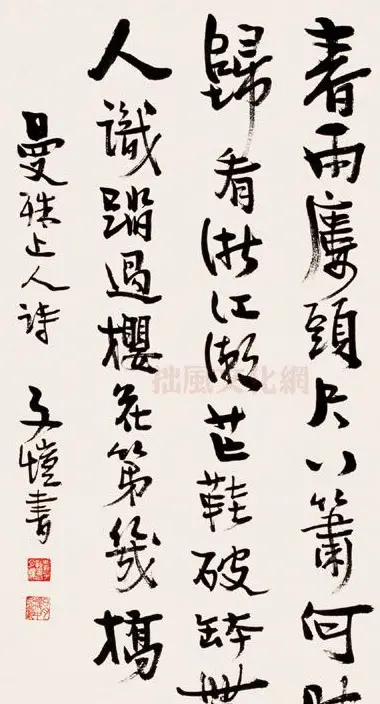 春雨廔頭尺八簫何時
歸看浙江潮芒鞋破鉢無
人識踏過櫻花第幾橋
曼殊上人詩 子愷書
拙風文化網